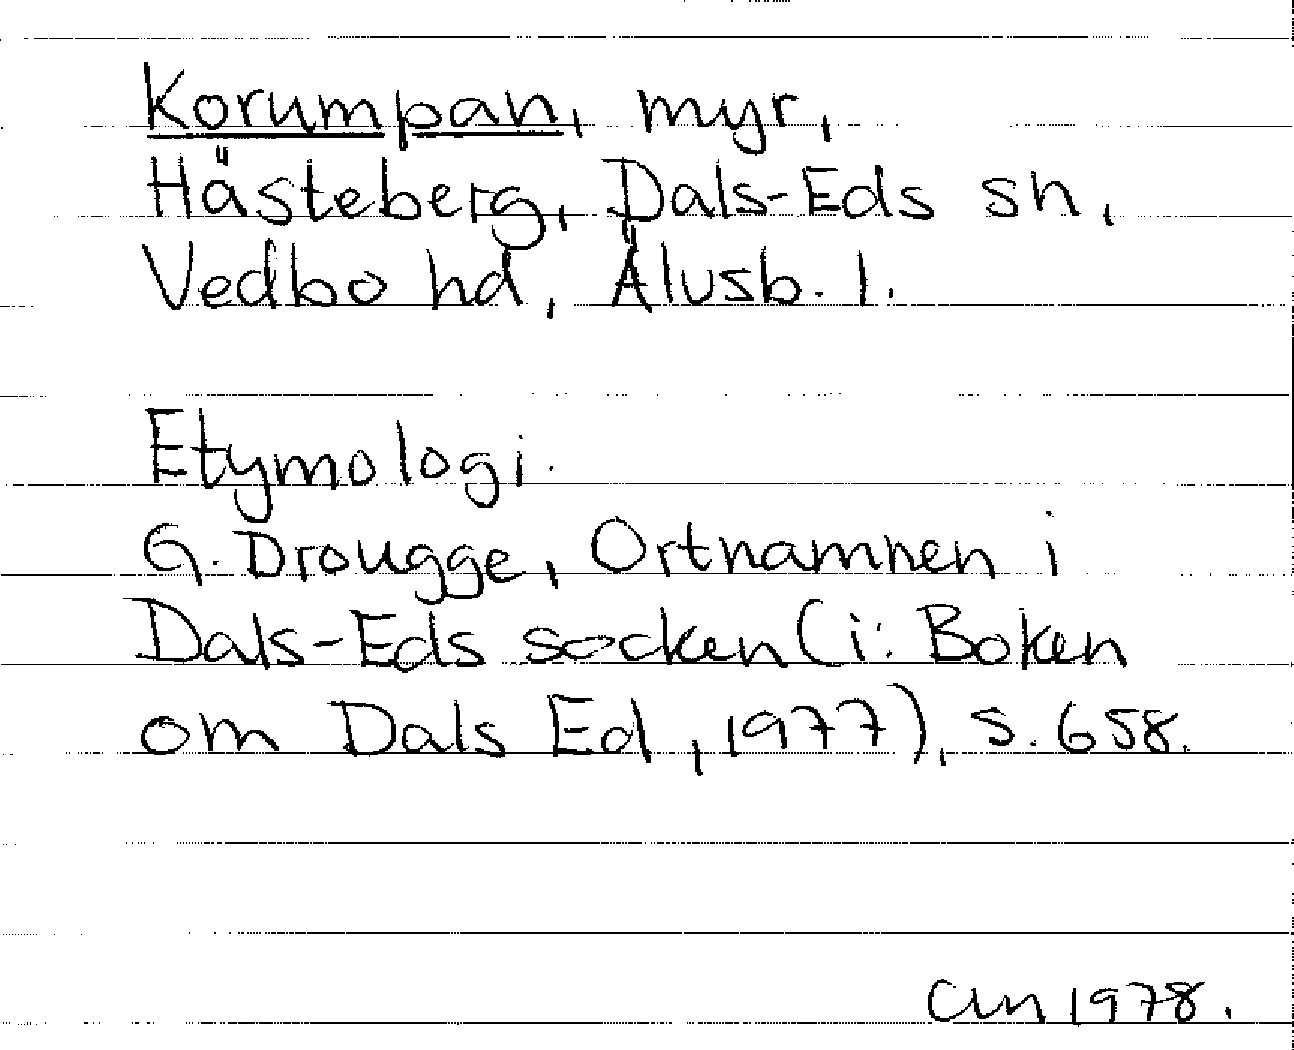 Korumpan, myr,
Hästeberg, Dals-Eds sn,
Vedbo hd, Älvsb. l.
Etymologi.
G. Drougge, Ortnamnen i
Dals-Eds socken (i: Boken
om Dals Ed, 1977), s. 658.
1978.